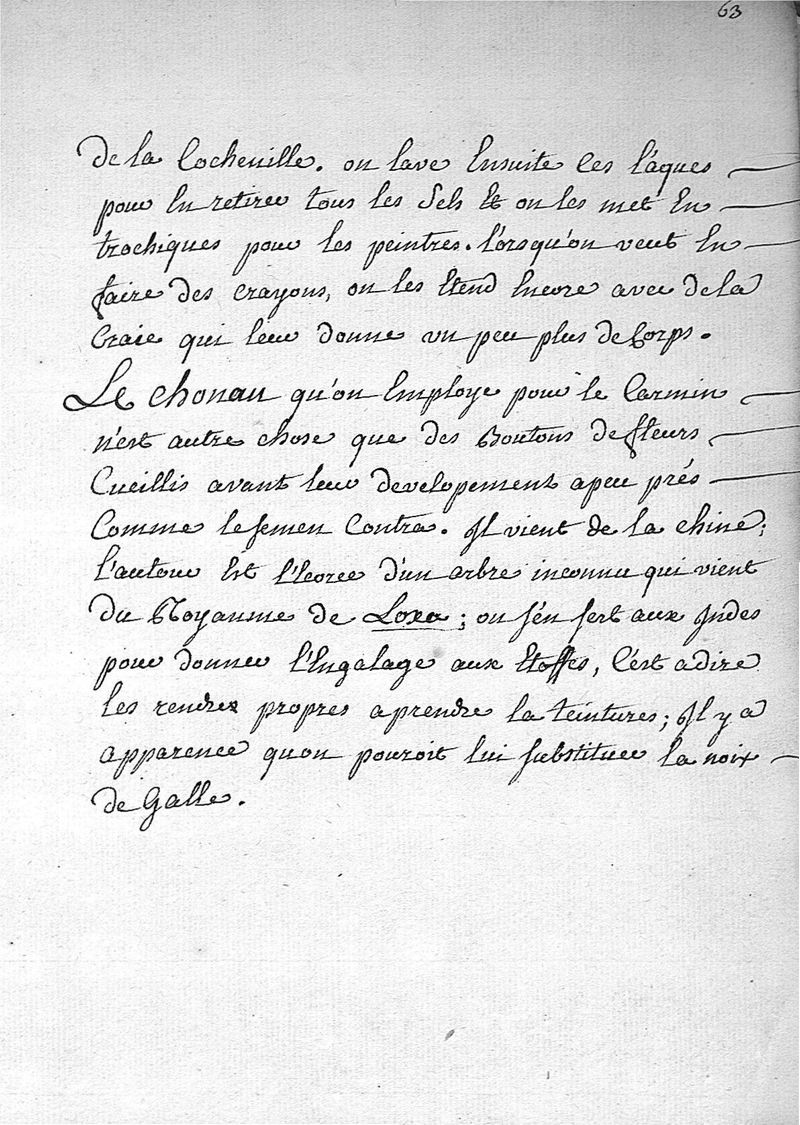 63
de la Cochenille. on lave Ensuite ces lâques
pour En retirer tous les Sels Et on les met En
trochiques pour les peintres. lórsqu'on veut En
faire des crayons, on les Etend Encore avec de la
Craie qui leur donne un peu plus de Corps.
Le chonau qu'on Employe pour le Carmin
n'est autre chose que des Boutons de fleurs
Cueillis avant leur developement apeu prés
Comme le semen Contra. Il vient de la chine;
l'autour Est l'Ecorce d'un arbre inconnu qui vient
du Royaume de Loxa; on s'én sert aux Indes
pour donner l'Engalage aux Etoffes, C'est adire
les rendre propres aprendre la teintures; Il y a
apparence quon pouroit lui substituer la noix
de Galle.